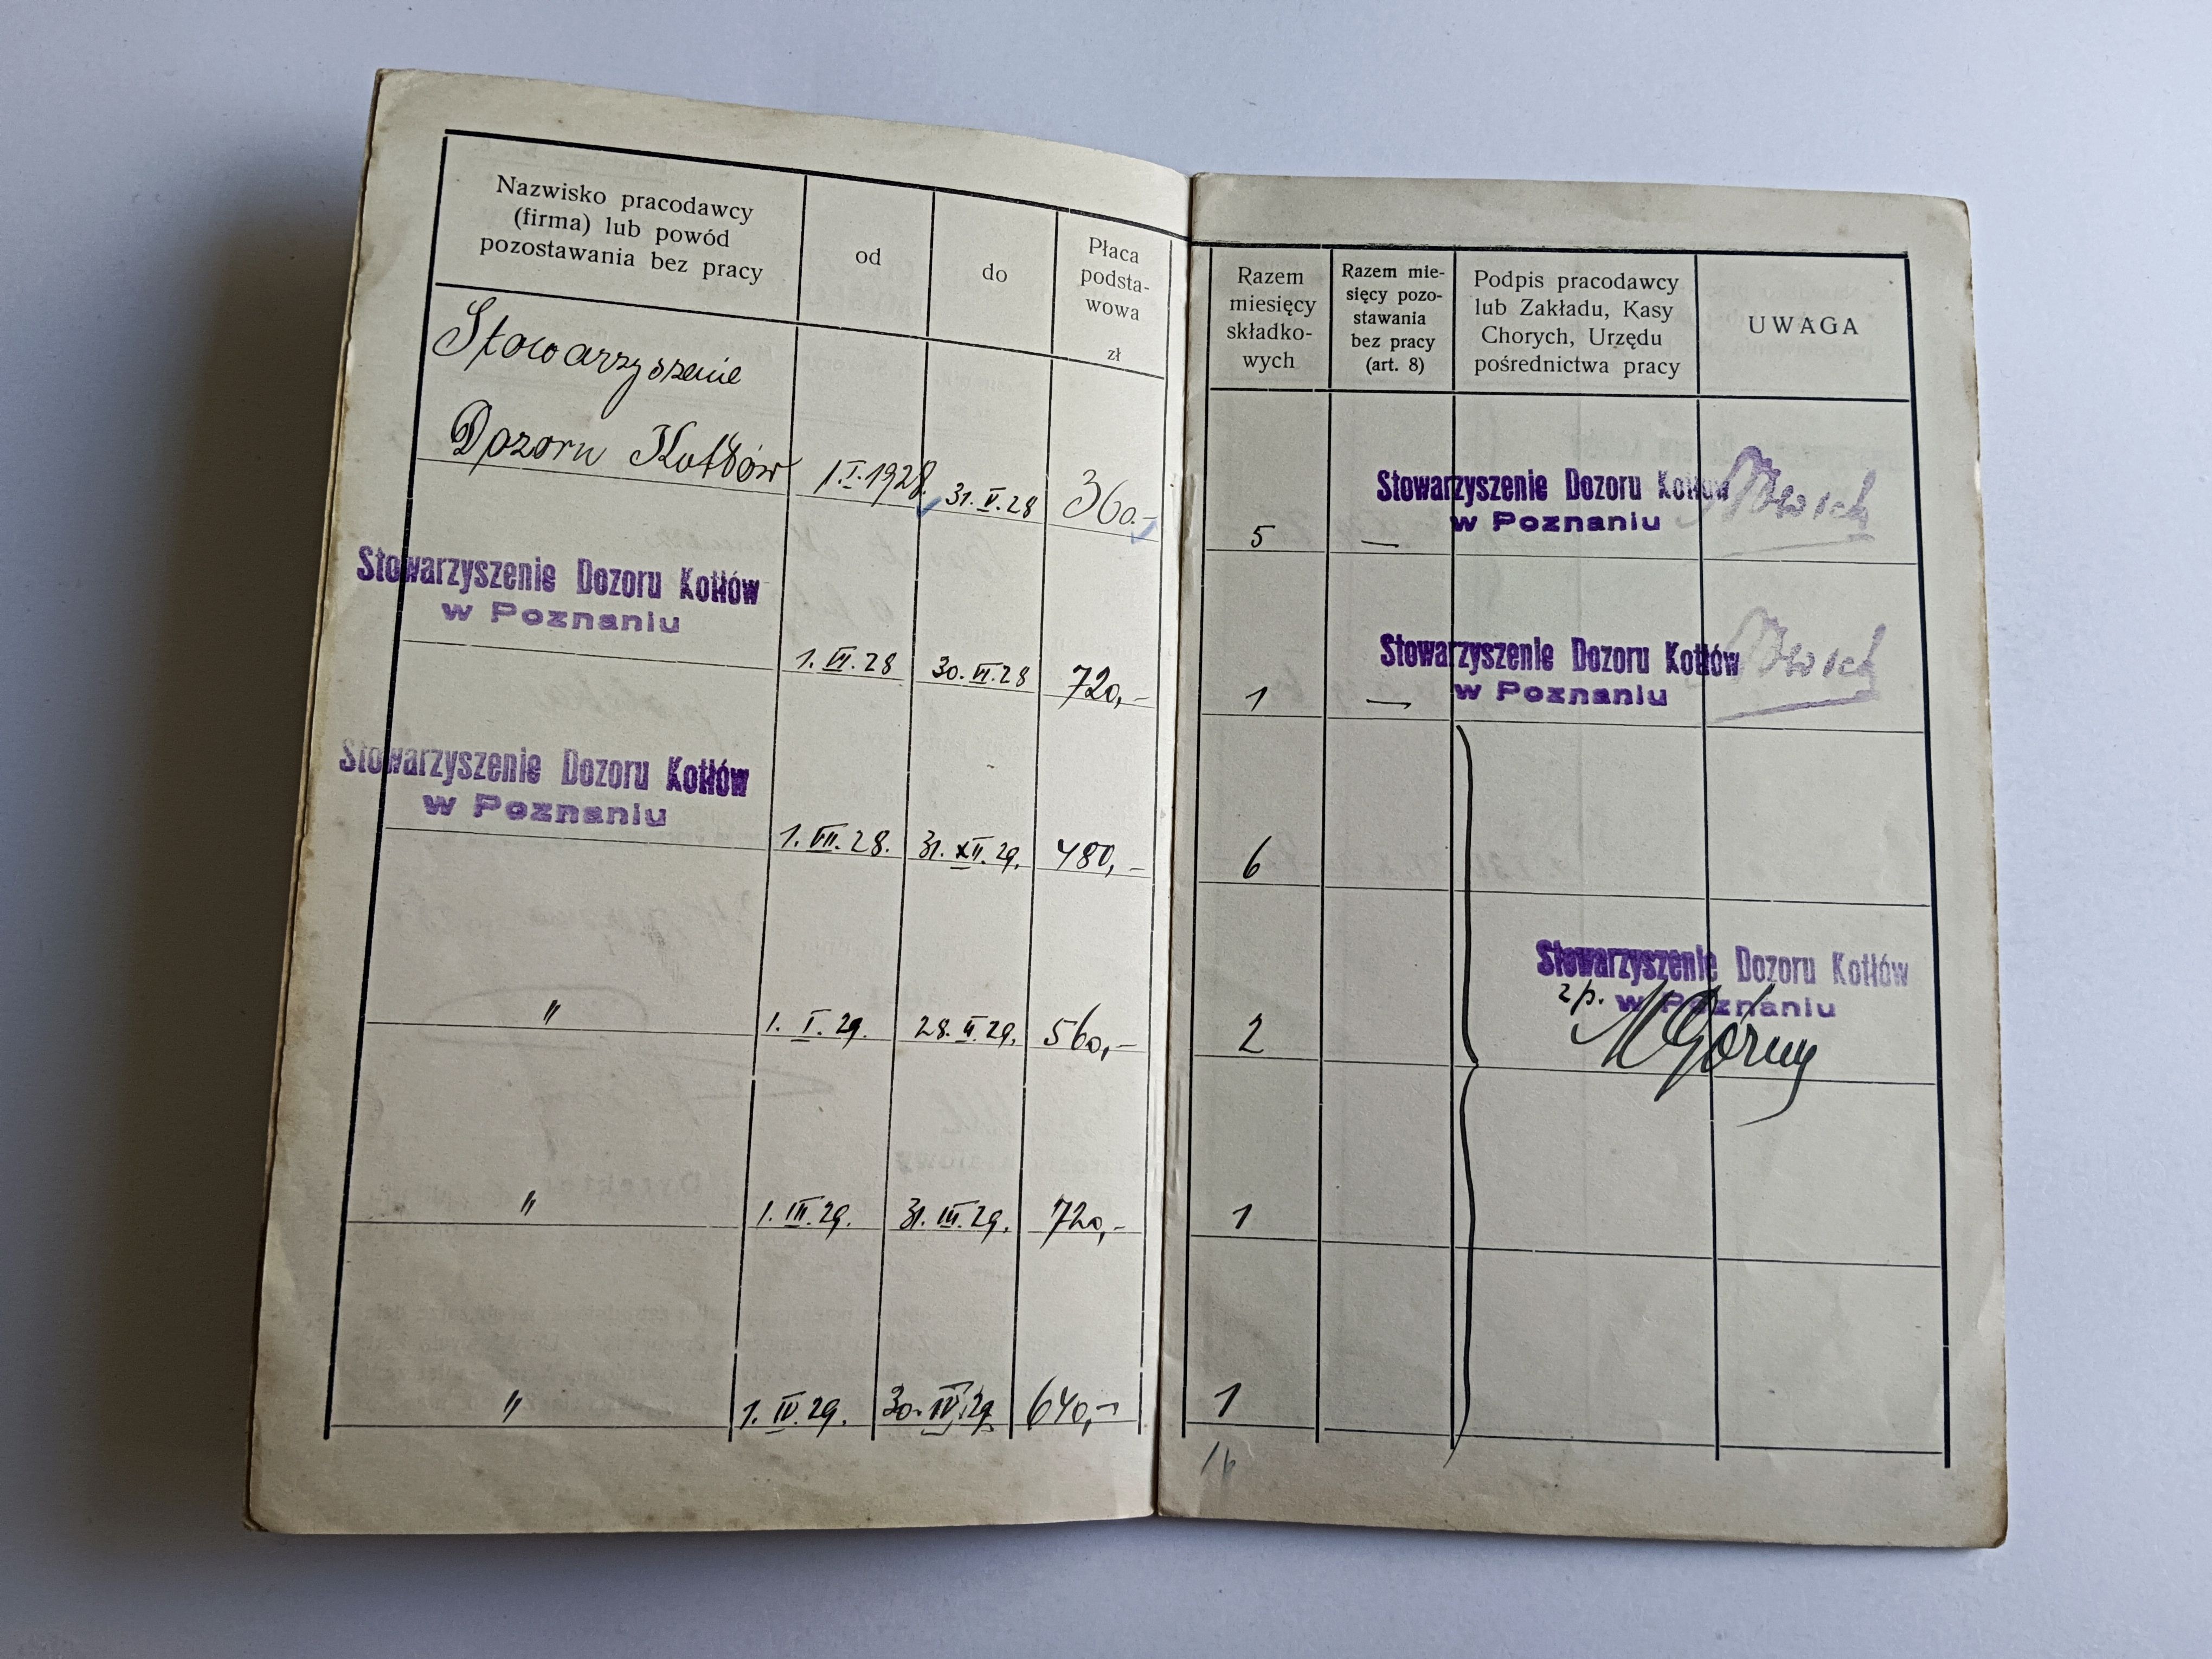 Nazwisko pracodawcy
(firma) lub powód
pozostawania bez pracy
od
do
Płaca
podsta-
wowa
zł
Razem
miesięcy
składko-
wych
Razem mie-
sięcy pozo-
stawania
bez pracy
(art. 8)
Podpis pracodawcy
lub Zakładu, Kasy
Chorych, Urzędu
pośrednictwa pracy
UWAGA
Stowarzyszenie
Dozoru Kotłów 1.I.1928. 31.V.28 360.- 5 —
Stowarzyszenie Dozoru Kotłów
w Poznaniu
Stowarzyszenie Dozoru Kotłów
w Poznaniu
1.VI.28 30.VI.28 720,- 1 —
Stowarzyszenie Dozoru Kotłów
w Poznaniu
Stowarzyszenie Dozoru Kotłów
w Poznaniu
1.VII.28. 31.XII.29. 480,- 6
" 1.I.29. 28.II.29. 560,- 2
Stowarzyszenie Dozoru Kotłów
w Poznaniu
zp.
MGórny
" 1.III.29. 31.III.29. 720,- 1
" 1.IV.29. 30.IV.29 640,- 1
16